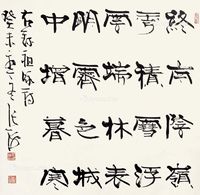 終南陰嶺
秀積雪浮
雲端林表
明霽色城
中增暮寒
右錄祖詠詩
癸未